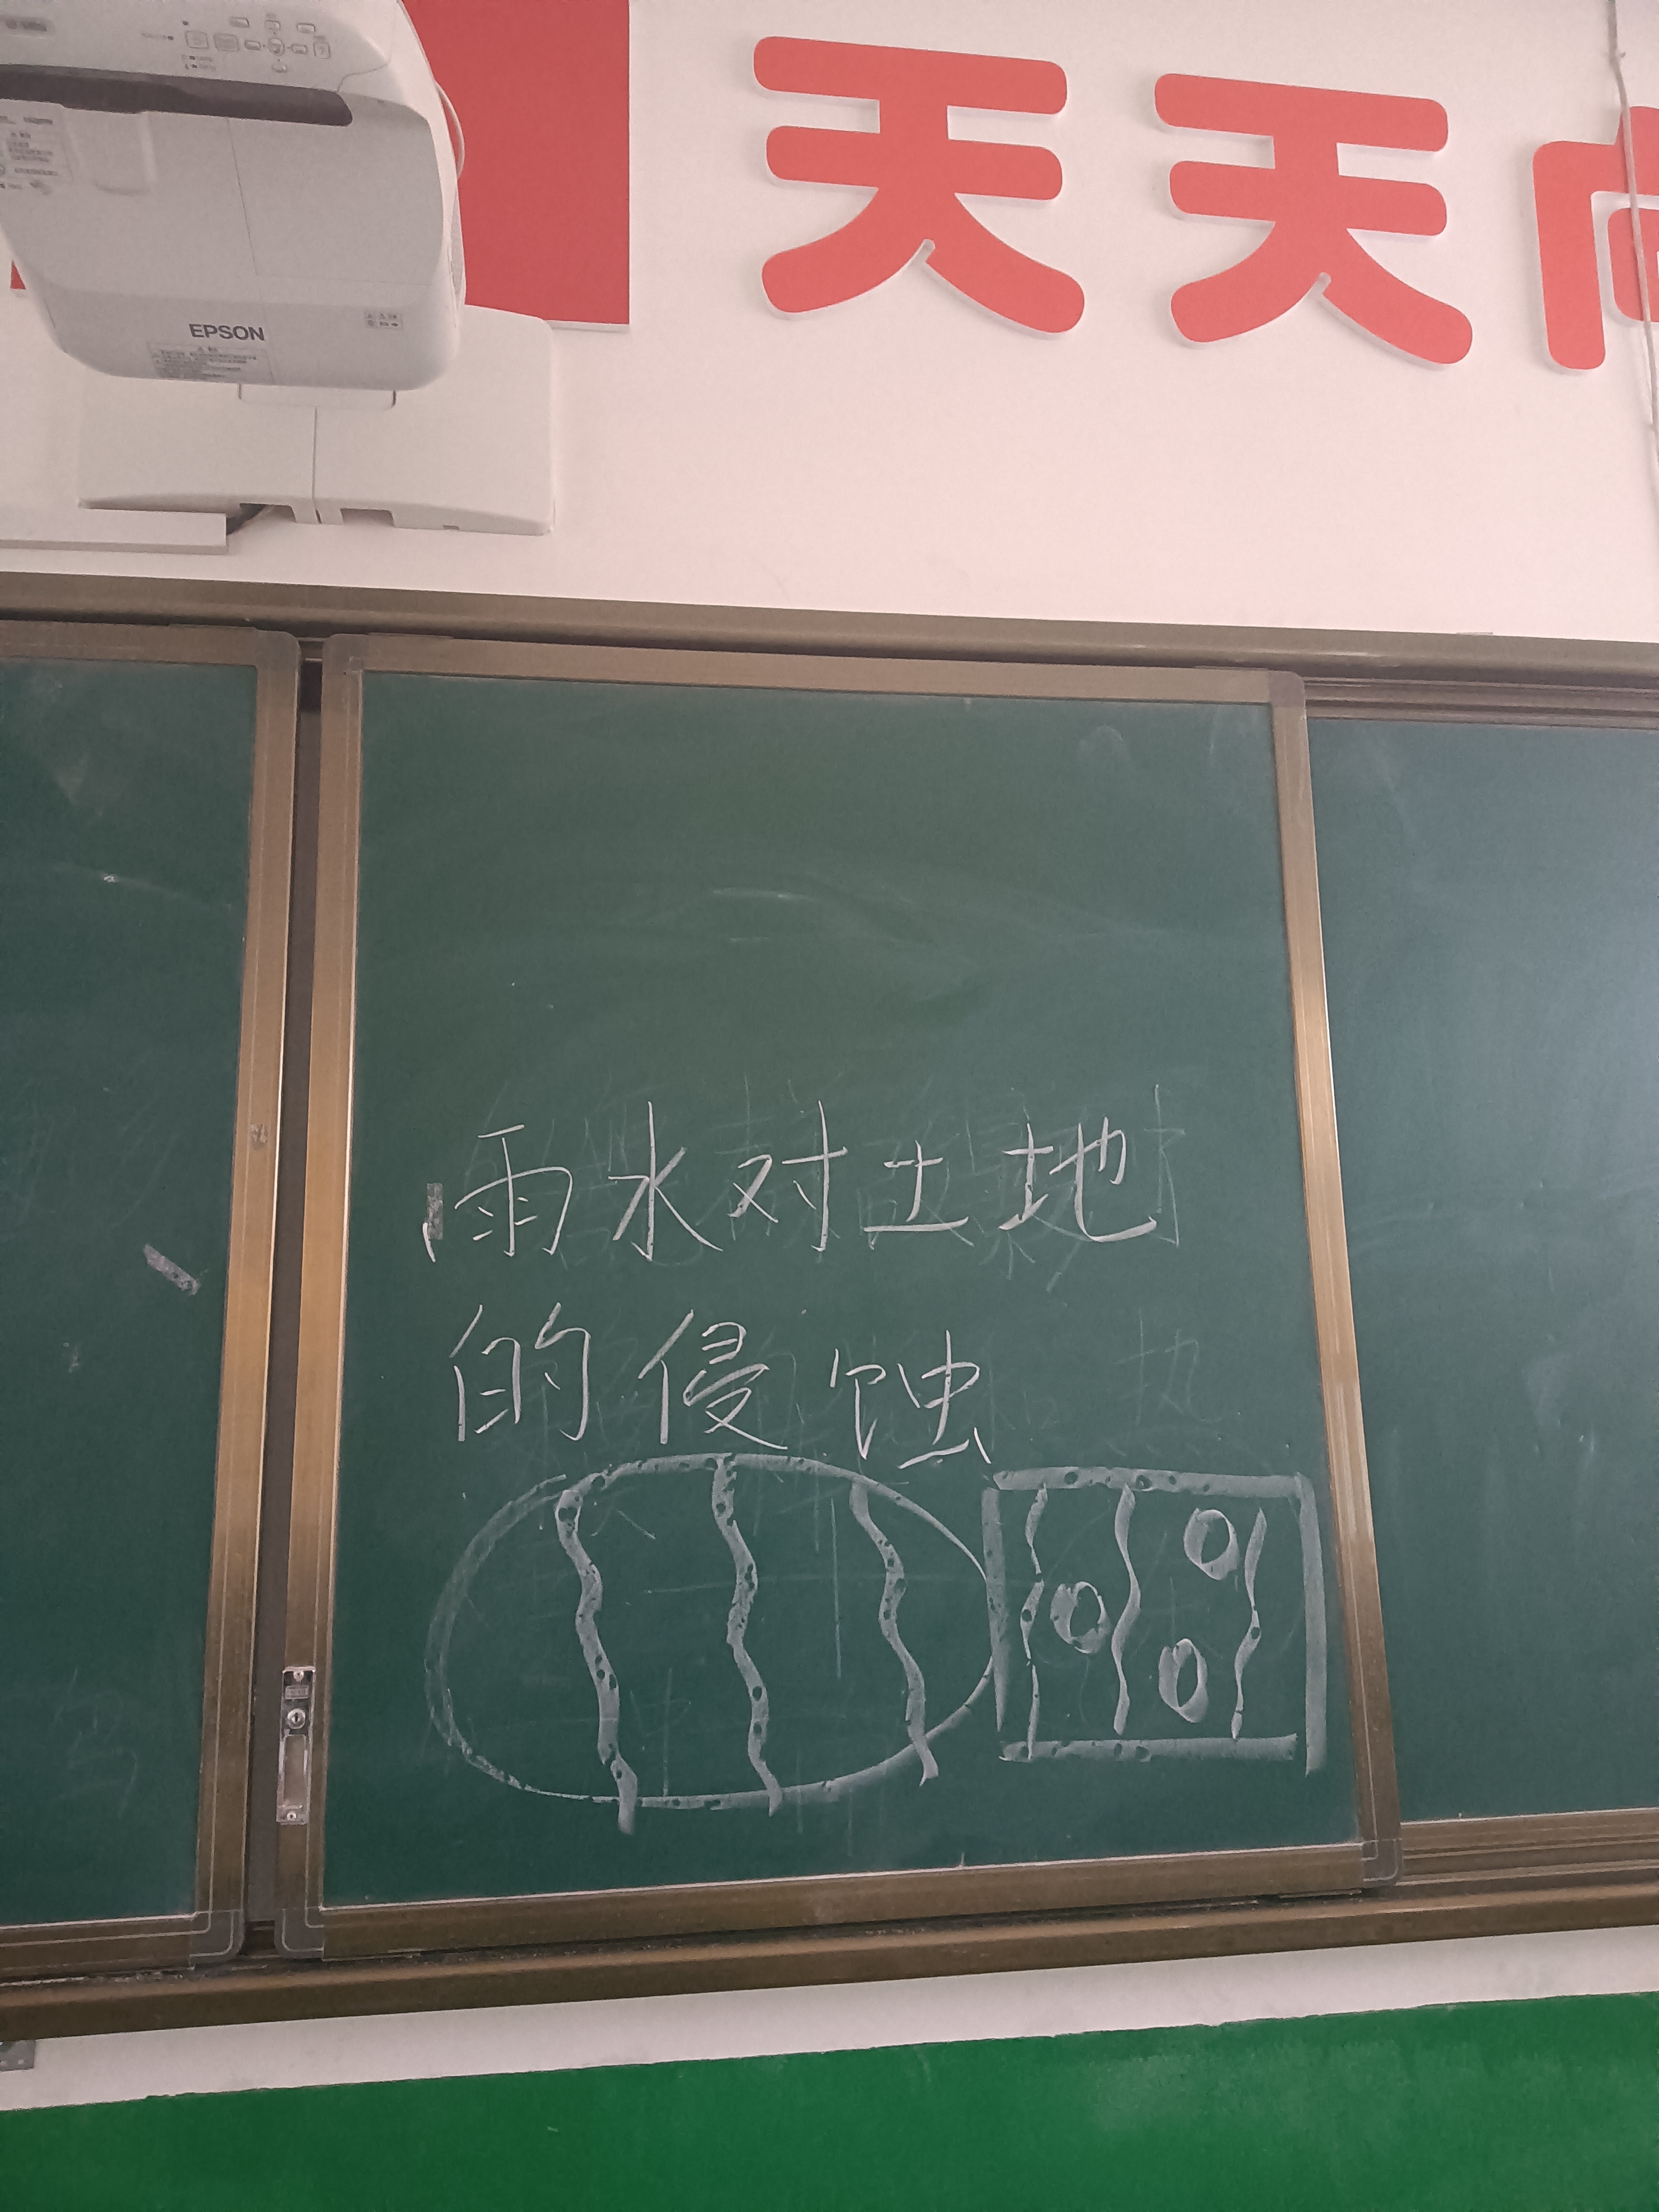 EPSON
天天向
雨水对土地
的侵蚀